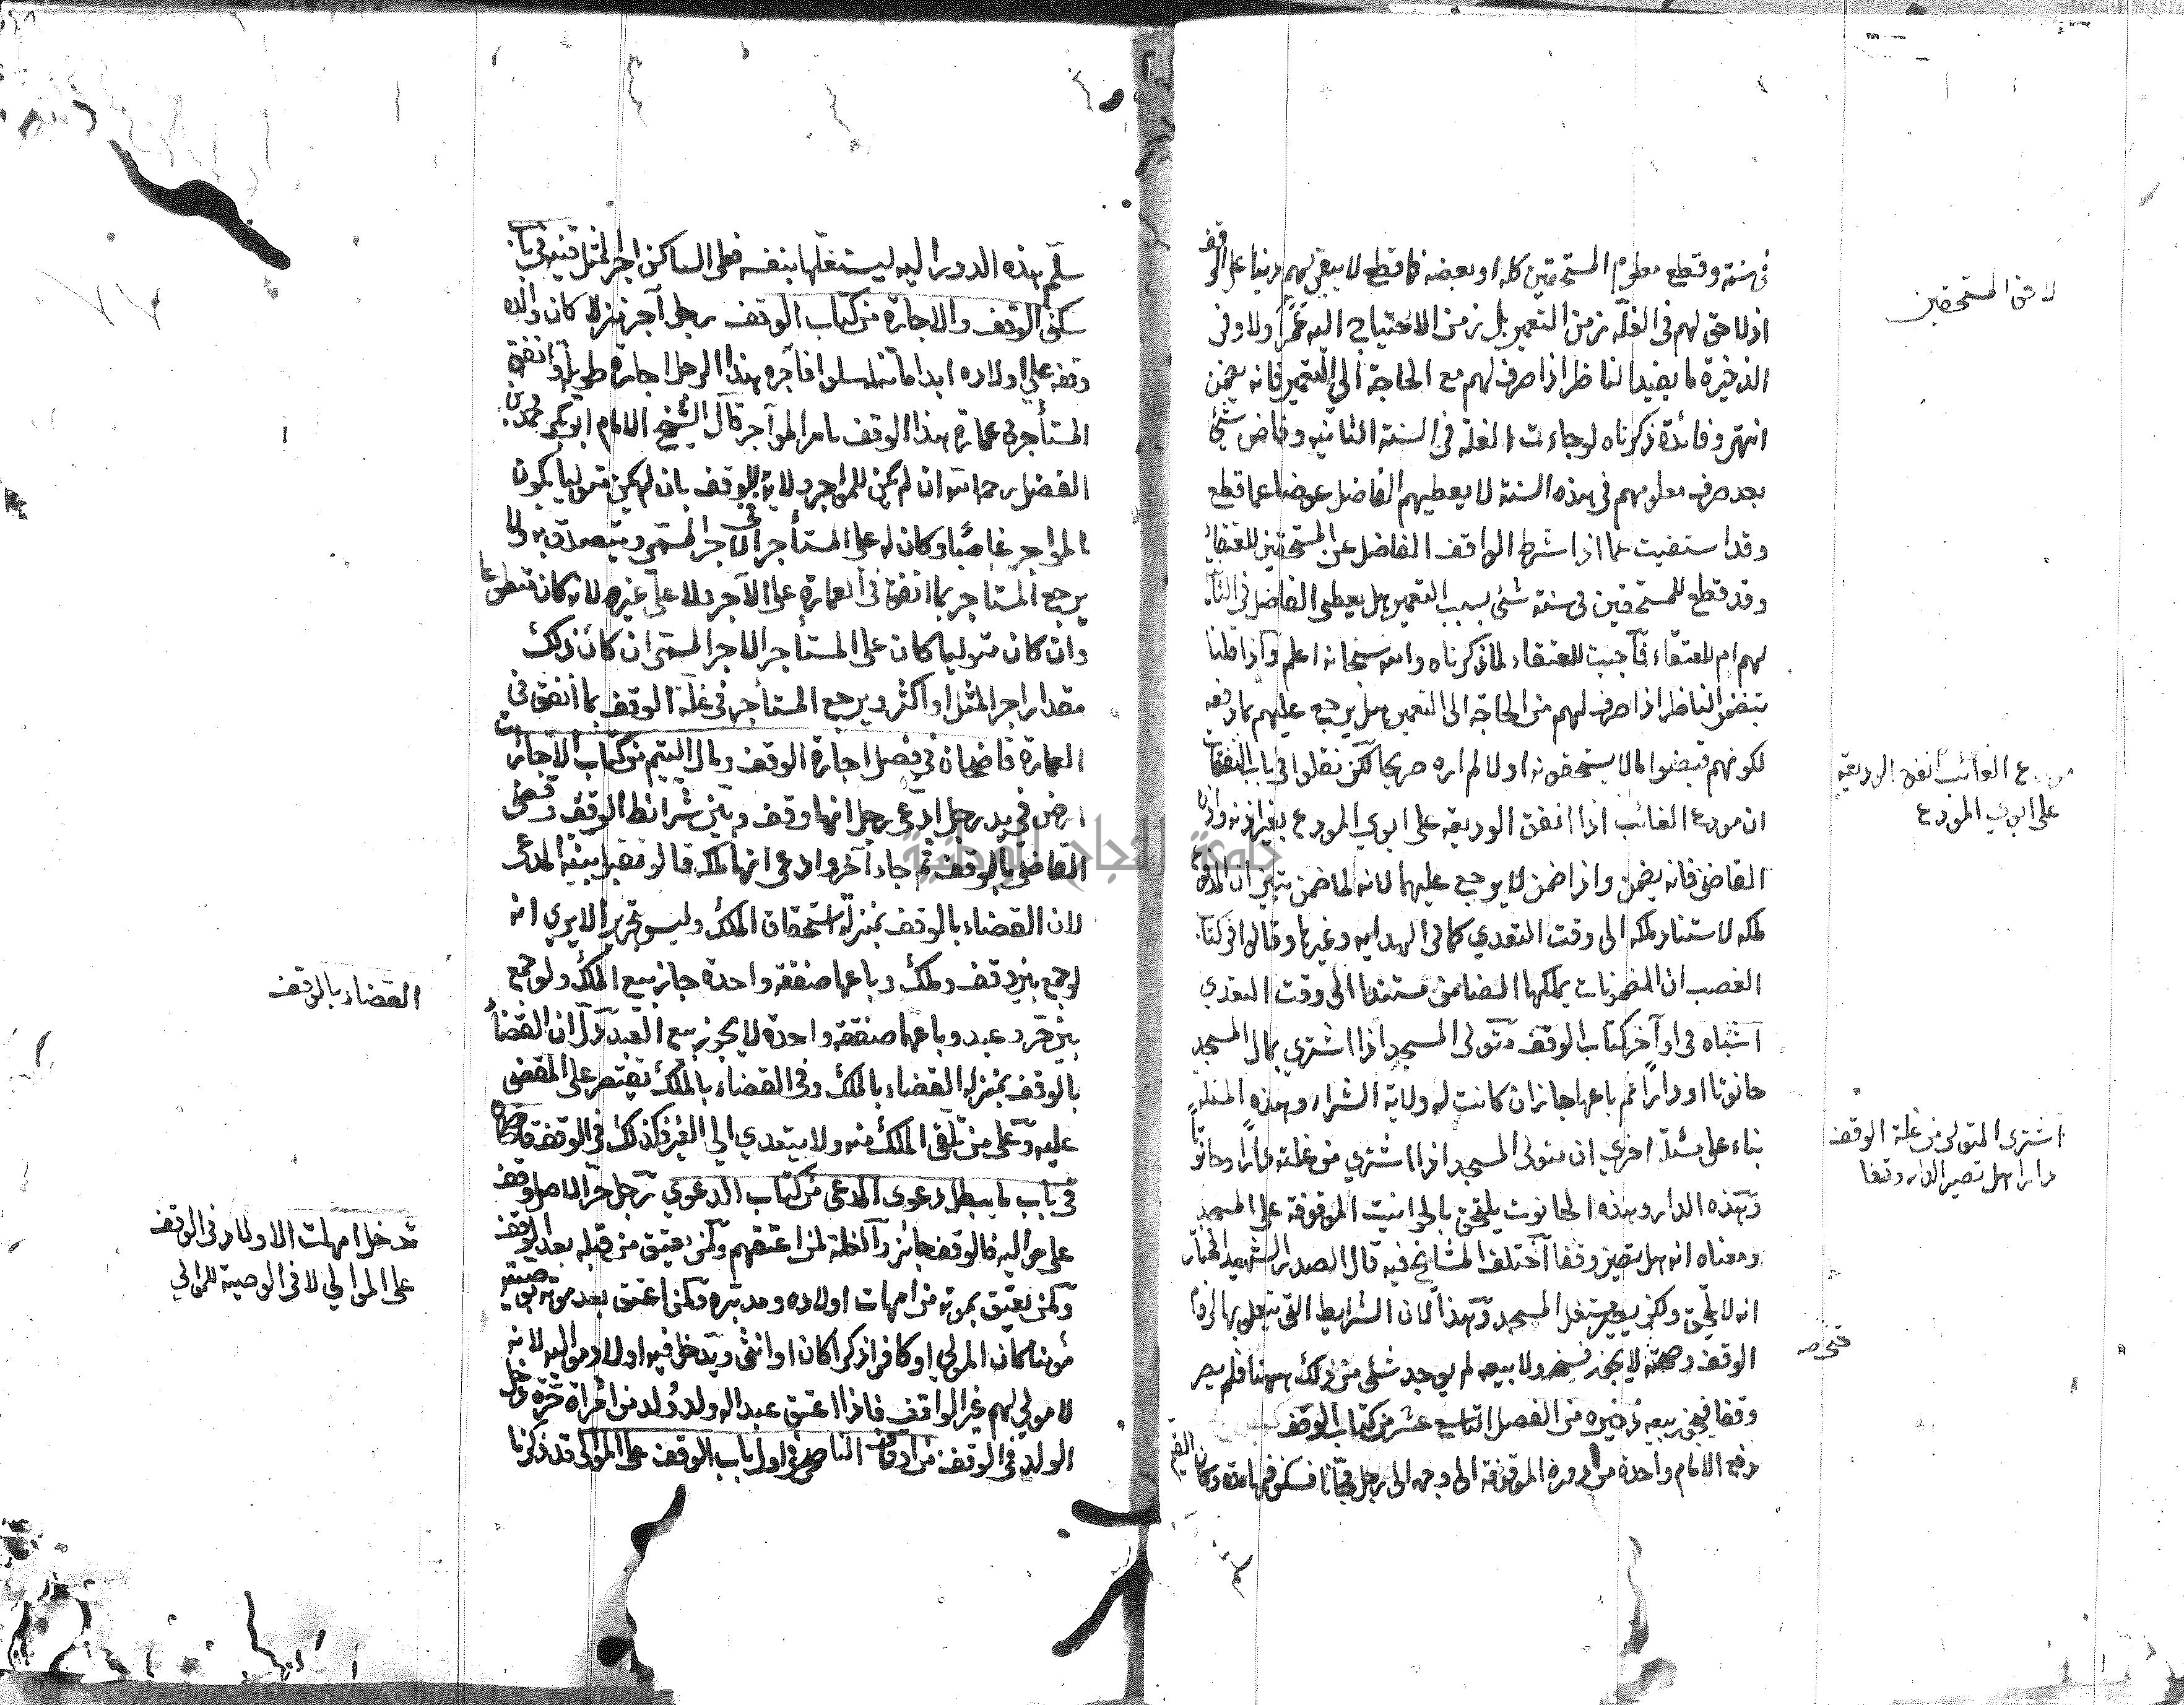 في سنة وقطع معلوم المستحقين كله او بعضه فما قطع لا يبقى لهم دينا على الوقف
اذ لا حق لهم في الغلة زمن التعمير بل زمن الاحتياج اليه عمر اولا وفي
الذخيرة ما يفيد ان الناظر اذا صرف لهم مع الحاجة الى التعمير فانه يضمن
انتهى وفائدة ما ذكرناه لو جاءت الغلة في السنة الثانية وفاض شيئ
بعد صرف معلومهم في هذه السنة لا يعطيهم الفاضل عوضا عما قطع
وقد استفتيت عما اذا شرط الواقف الفاضل عن المستحقين للعتقاء
وقد قطع للمستحقين في سنة شئ بسبب التعمير هل يعطى الفاضل في الثا
لهم ام للعتقاء فاجبت للعتقاء لما ذكرناه والله سبحانه اعلم واذا قلنا
بتضمين الناظر اذا صرف لهم مع الحاجة الى التعمير هل يرجع عليهم بما دفعه
لكونهم قبضوا مالا يستحقونه اولا لم اره صريحا لكن نقلوا في باب النفقات
ان مودع الغائب اذا انفق الوديعة على ابوي المودع بغير اذنه واذن
القاضي فانه يضمن واذا ضمن لا يرجع عليهما لانه لما ضمن تبين ان المدفوع
ملكه لاستناد ملكه الى وقت التعدي كما في الهداية وغيرها وقالوا في كتاب
الغصب ان المضمونات يملكها الضامن مستندا الى وقت التعدي
اشباه في اواخر كتاب الوقف متولى المسجد اذا اشترى بمال المسجد
حانوتا او دارا ثم باعها جاز ان كانت له ولاية الشراء وهذه المسئلة
بناء على مسئلة اخرى ان متولى المسجد اذا اشترى من غلته دارا وحانوتا
فهذه الدار وهذه الحانوت يلتحق بالحوانيت الموقوفة على المسجد
ومعناه انه هل يصير وقفا اختلف المشايخ فيه قال الصدر الشهيد المختار
انه لا يلتحق ولكن يصير مستغل المسجد وهذا لان الشرايط التي يتعلق بها لزوم
الوقف وصحته لا يجوز فسخه ولا بيعه لم يوجد شئ من ذلك ههنا فلم يصر
وقفا فيجوز بيعه ذخيره من الفصل التاسع عشر من كتاب الوقف
دفع الامام واحدة من دوره الموقوفة الى وجه الى رجل مجانا فسكن فيها مدة وكان القيم
سلم
لا حق المستحقين
مودع الغائب انفق الوديعة
على ابوي المودع
اشترى المتولى من غلة الوقف
دارا هل تصير الدار وقفا
سلم هذه الدور اليه ليستغلها بنفسه فعلى الساكن اجر المثل قنيه في باب
سكنى الوقف والاجارة من كتاب الوقف رجل آجر منزلا كان والده
وقفه على اولاده ابدا ما تناسلوا فآجره هذا الرجل اجارة طويلة وانفق
المستأجر في عمارة هذا الوقف بامر المواجر قال الشيخ الامام ابو بكر محمد بن
الفضل رحمه الله ان لم يكن للمواجر ولاية للوقف بان لم يكن متوليا يكون
المواجر غاصبا وكان له على المستأجر الاجر المسمى ويتصدق به ولا
يرجع المستأجر بما انفق في العمارة على الآجر ولا على غيره لانه كان متطوعا
وان كان متوليا كان على المستأجر الاجر المسمى ان كان ذلك
مقدار اجر المثل او اكثر ويرجع المستأجر في غلة الوقف بما انفق في
العمارة قاضيخان في فصل اجارة الوقف ومال اليتيم من كتاب الاجارات
ارض في يد رجل ادعى رجل انها وقف وبين شرائط الوقف وقضى
القاضي بالوقف ثم جاء آخر وادعى انها ملكه قالوا تقبل بينة المدعى
لان القضاء بالوقف بمنزلة استحقاق الملك وليس بتحرير الا يرى انه
لو جمع بين وقف وملك وباعهما صفقة واحدة جاز بيع الملك ولو جمع
بين حر وعبد وباعهما صفقة واحدة لا يجوز بيع العبد دل ان القضاء
بالوقف بمنزلة القضاء بالملك وفي القضاء بالملك يقتصر على المقضى
عليه وعلى من تلقى الملك منه ولا يتعدى الى الغير فكذلك في الوقف قاضيخان
في باب ما يبطل دعوى المدعى من كتاب الدعوى رجل حر الاصل وقف
على مواليه فالوقف جائز والغلة لمن اعتقهم ولمن يعتق من قبله بعد الوقف
ولمن يعتق بموته من امهات اولاده ومدبره ولمن اعتق بعد موته بوصيته
مؤمنا كان المولى او كافرا ذكرا كان او انثى ويدخل فيه اولاد مواليه لانه
لا مولى لهم غير الواقف فاذا اعتق عبدا له ولد ولد من امرأة حرة دخل
الولد في الوقف من اوقاف الناصحي في اول باب الوقف على الموالى قد ذكرنا
القضاء بالوقف
تدخل امهات الاولاد في الوقف
على الموالي لا في الوصية للموالي
جامعة النجاح الوطنية